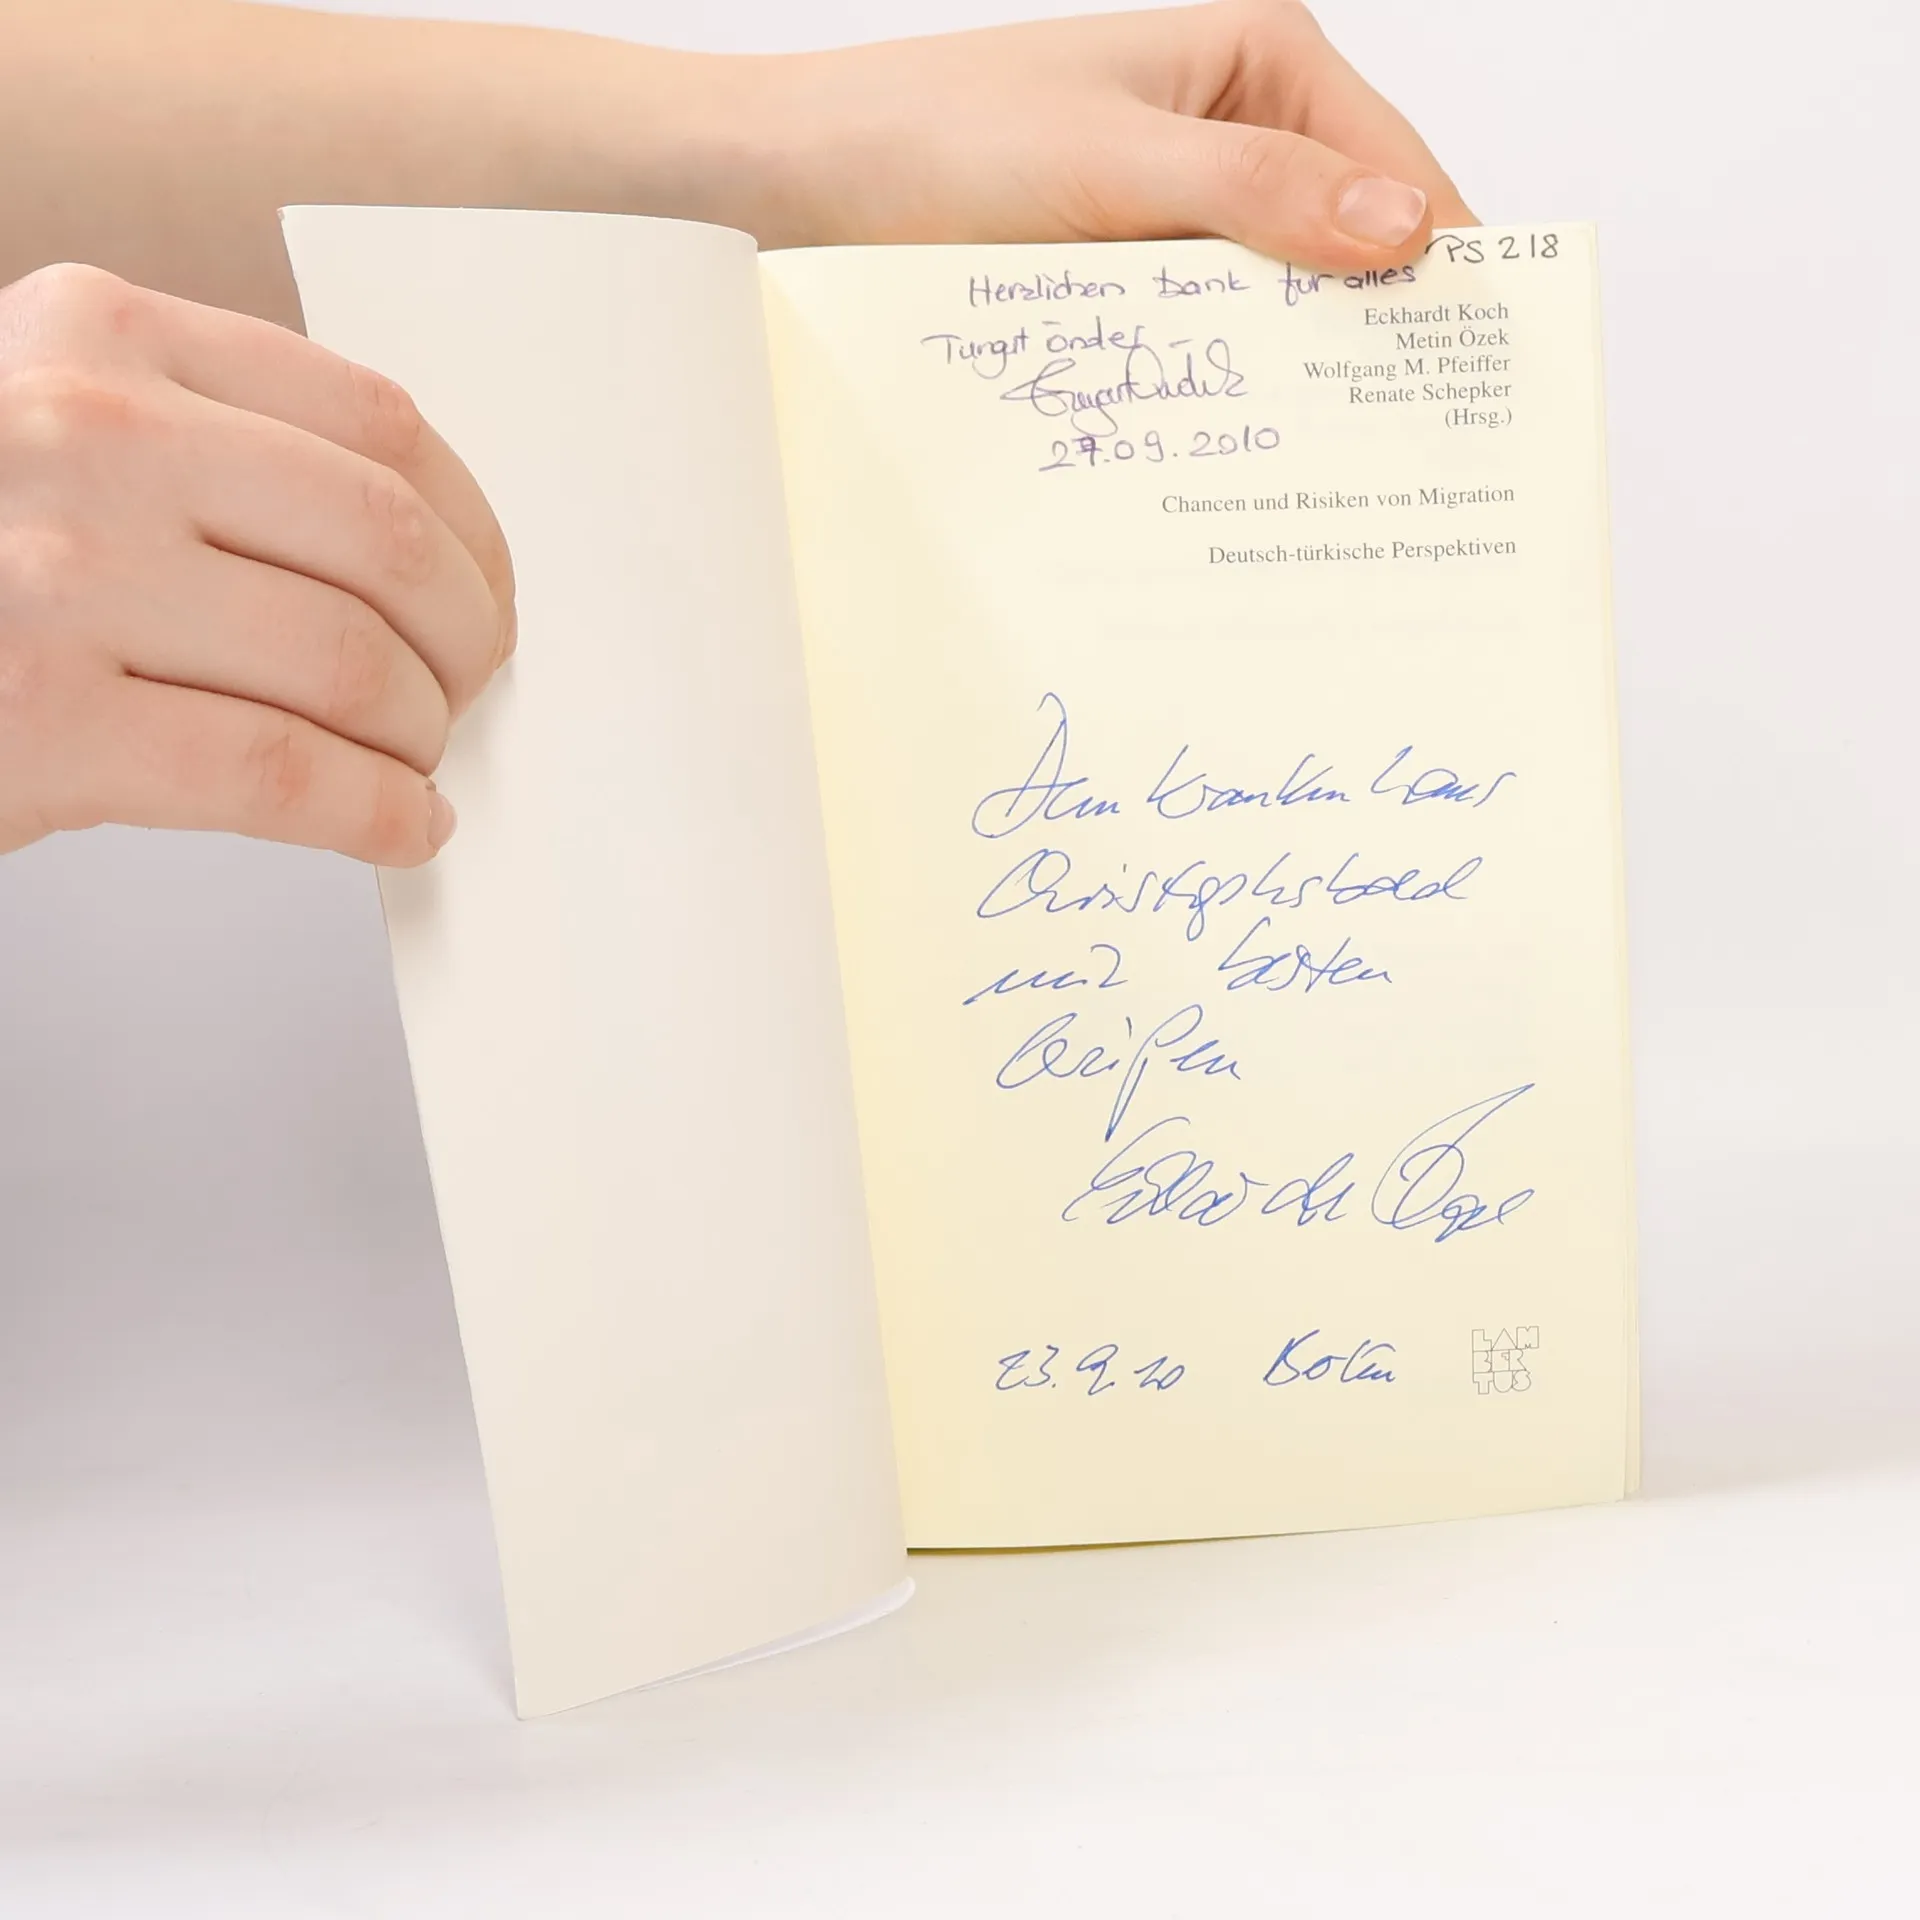 PS 218
Herzlichen Dank für alles
Turgut Önder
27.09.2010
Eckhardt Koch
Metin Özek
Wolfgang M. Pfeiffer
Renate Schepker
(Hrsg.)
Chancen und Risiken von Migration
Deutsch-türkische Perspektiven
Dem Krankenhaus
Christophsbad
mit besten
Grüßen
23.9.10
LAM
BER
TUS